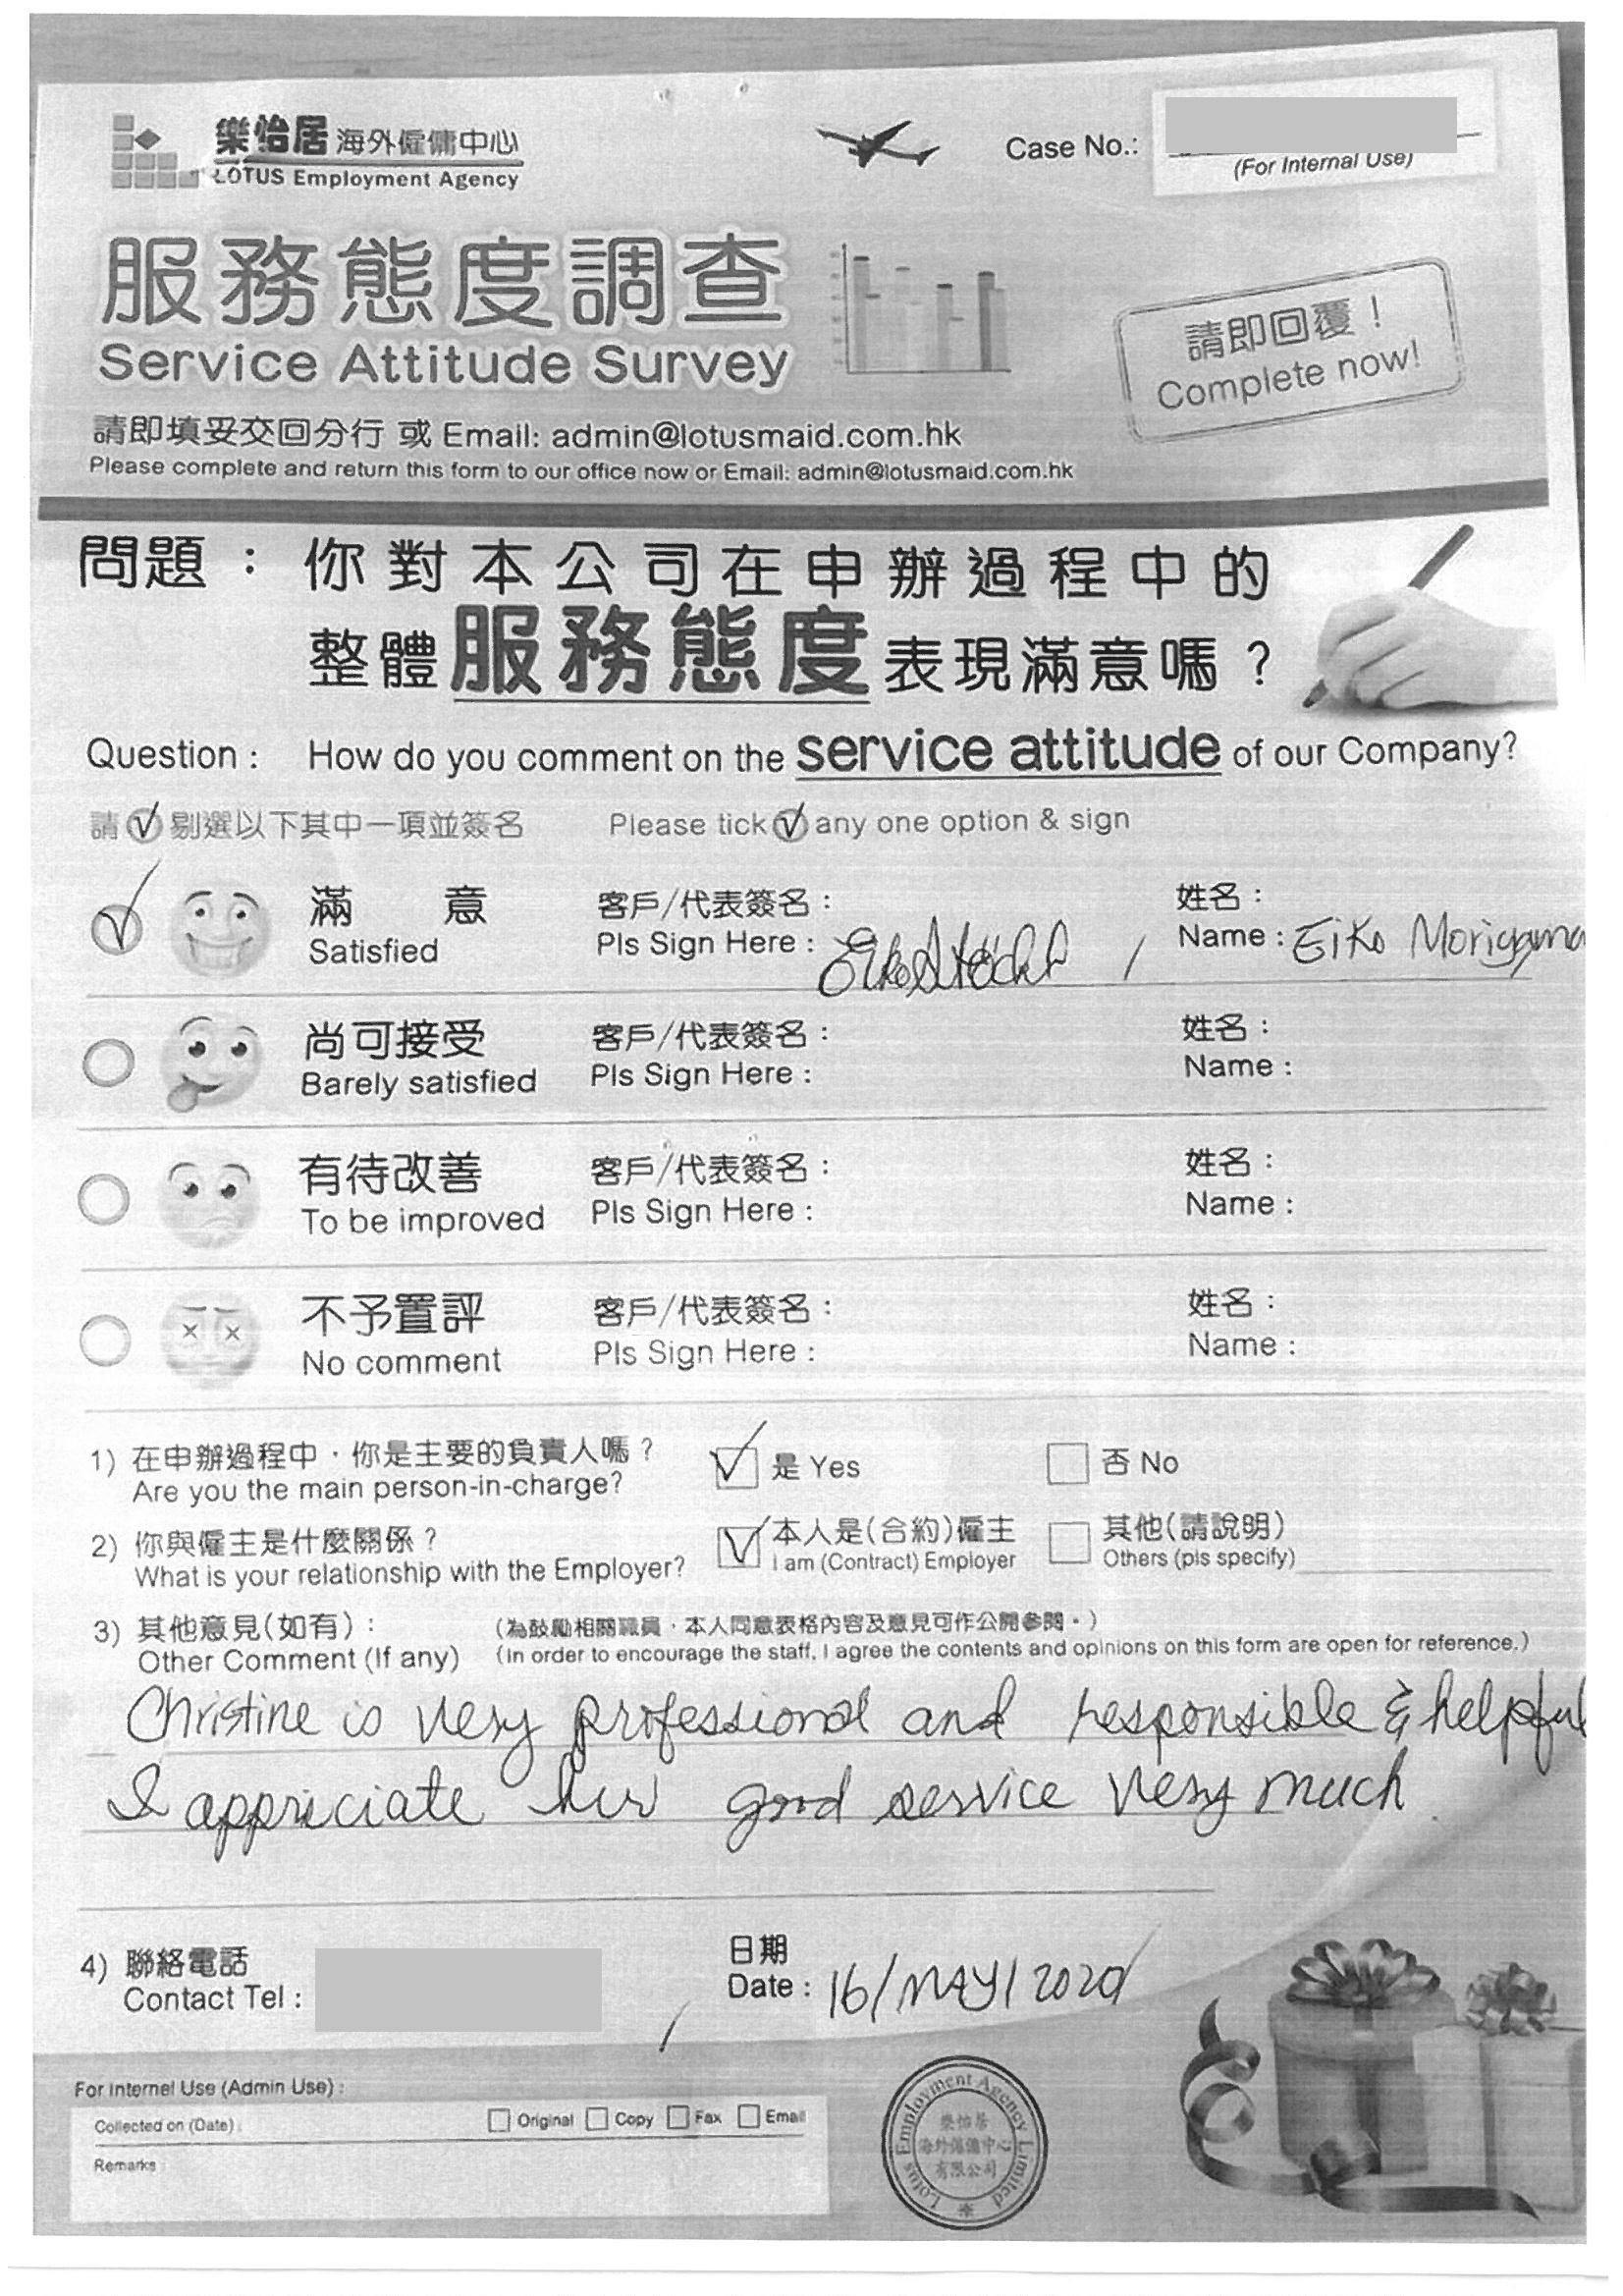 樂怡居 海外僱傭中心
LOTUS Employment Agency
Case No.:
(For Internal Use)
服務態度調查
Service Attitude Survey
請即回覆！
Complete now!
請即填妥交回分行 或 Email: admin@lotusmaid.com.hk
Please complete and return this form to our office now or Email: admin@lotusmaid.com.hk
問題：你對本公司在申辦過程中的
整體服務態度表現滿意嗎？
Question : How do you comment on the service attitude of our Company?
請 剔選以下其中一項並簽名 Please tick any one option & sign
滿 意 客戶/代表簽名： 姓名：
Satisfied Pls Sign Here : Name : Eiko Moriyama
尚可接受 客戶/代表簽名： 姓名：
Barely satisfied Pls Sign Here : Name :
有待改善 客戶/代表簽名： 姓名：
To be improved Pls Sign Here : Name :
不予置評 客戶/代表簽名： 姓名：
No comment Pls Sign Here : Name :
1) 在申辦過程中，你是主要的負責人嗎？ 是 Yes 否 No
Are you the main person-in-charge?
2) 你與僱主是什麼關係？ 本人是(合約)僱主 其他(請說明)
What is your relationship with the Employer? I am (Contract) Employer Others (pls specify)
3) 其他意見(如有)： (為鼓勵相關職員，本人同意表格內容及意見可作公開參閱。)
Other Comment (If any) (In order to encourage the staff, I agree the contents and opinions on this form are open for reference.)
Christine is very professional and responsible & helpful
I appreciate her good service very much.
4) 聯絡電話 日期
Contact Tel : Date : 16/MAY/2020
For Internal Use (Admin Use) :
Collected on (Date) : Original Copy Fax Email
Remarks :
Lotus Employment Agency Limited
樂怡居
海外僱傭中心
有限公司